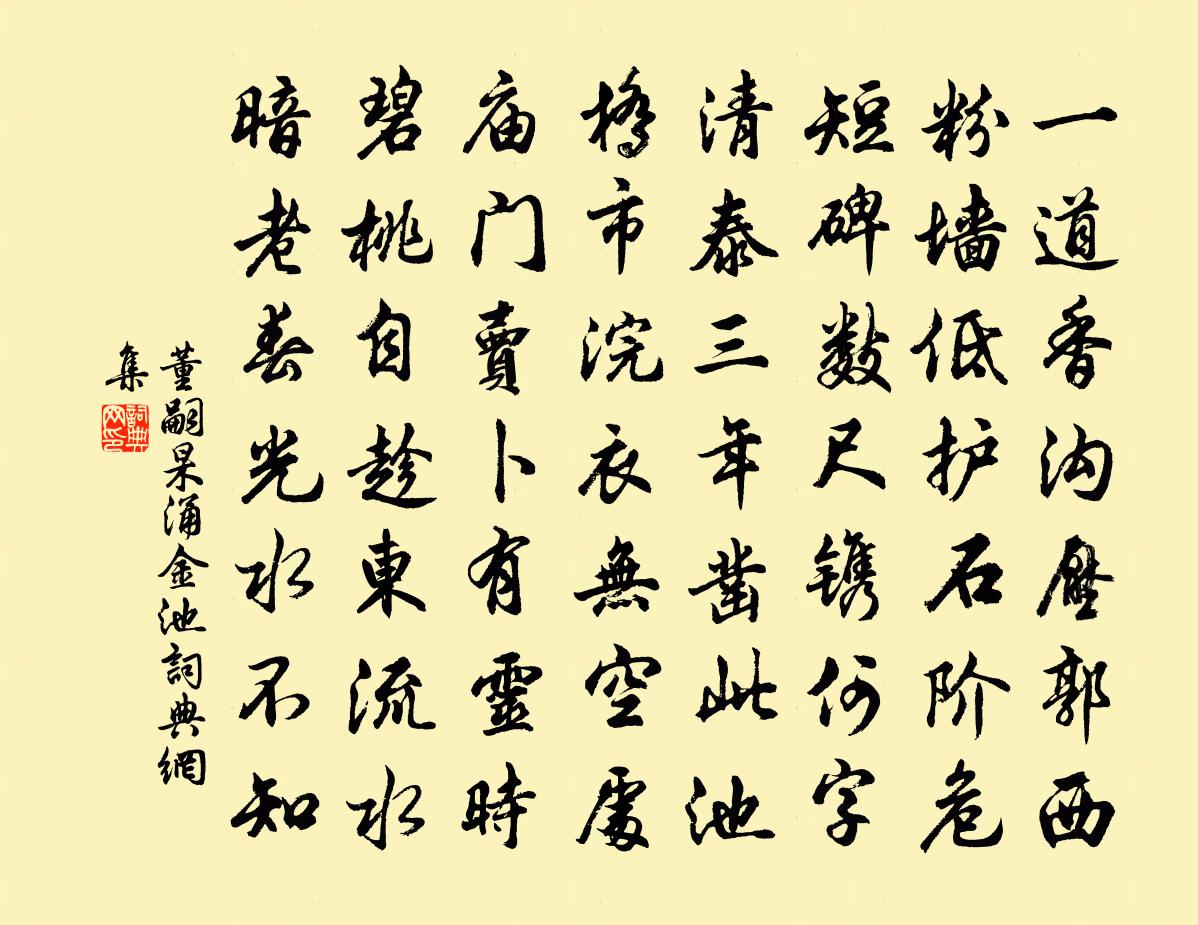 一道香沟壓郭西
粉墙低护石阶危
短碑数尺镌何字
清泰三年凿此池
橋市浣衣無空處
庙门賣卜有靈時
碧桃自趁東流水
暗老春光水不知
董嗣杲涌金池詞典網
集
詞典网印